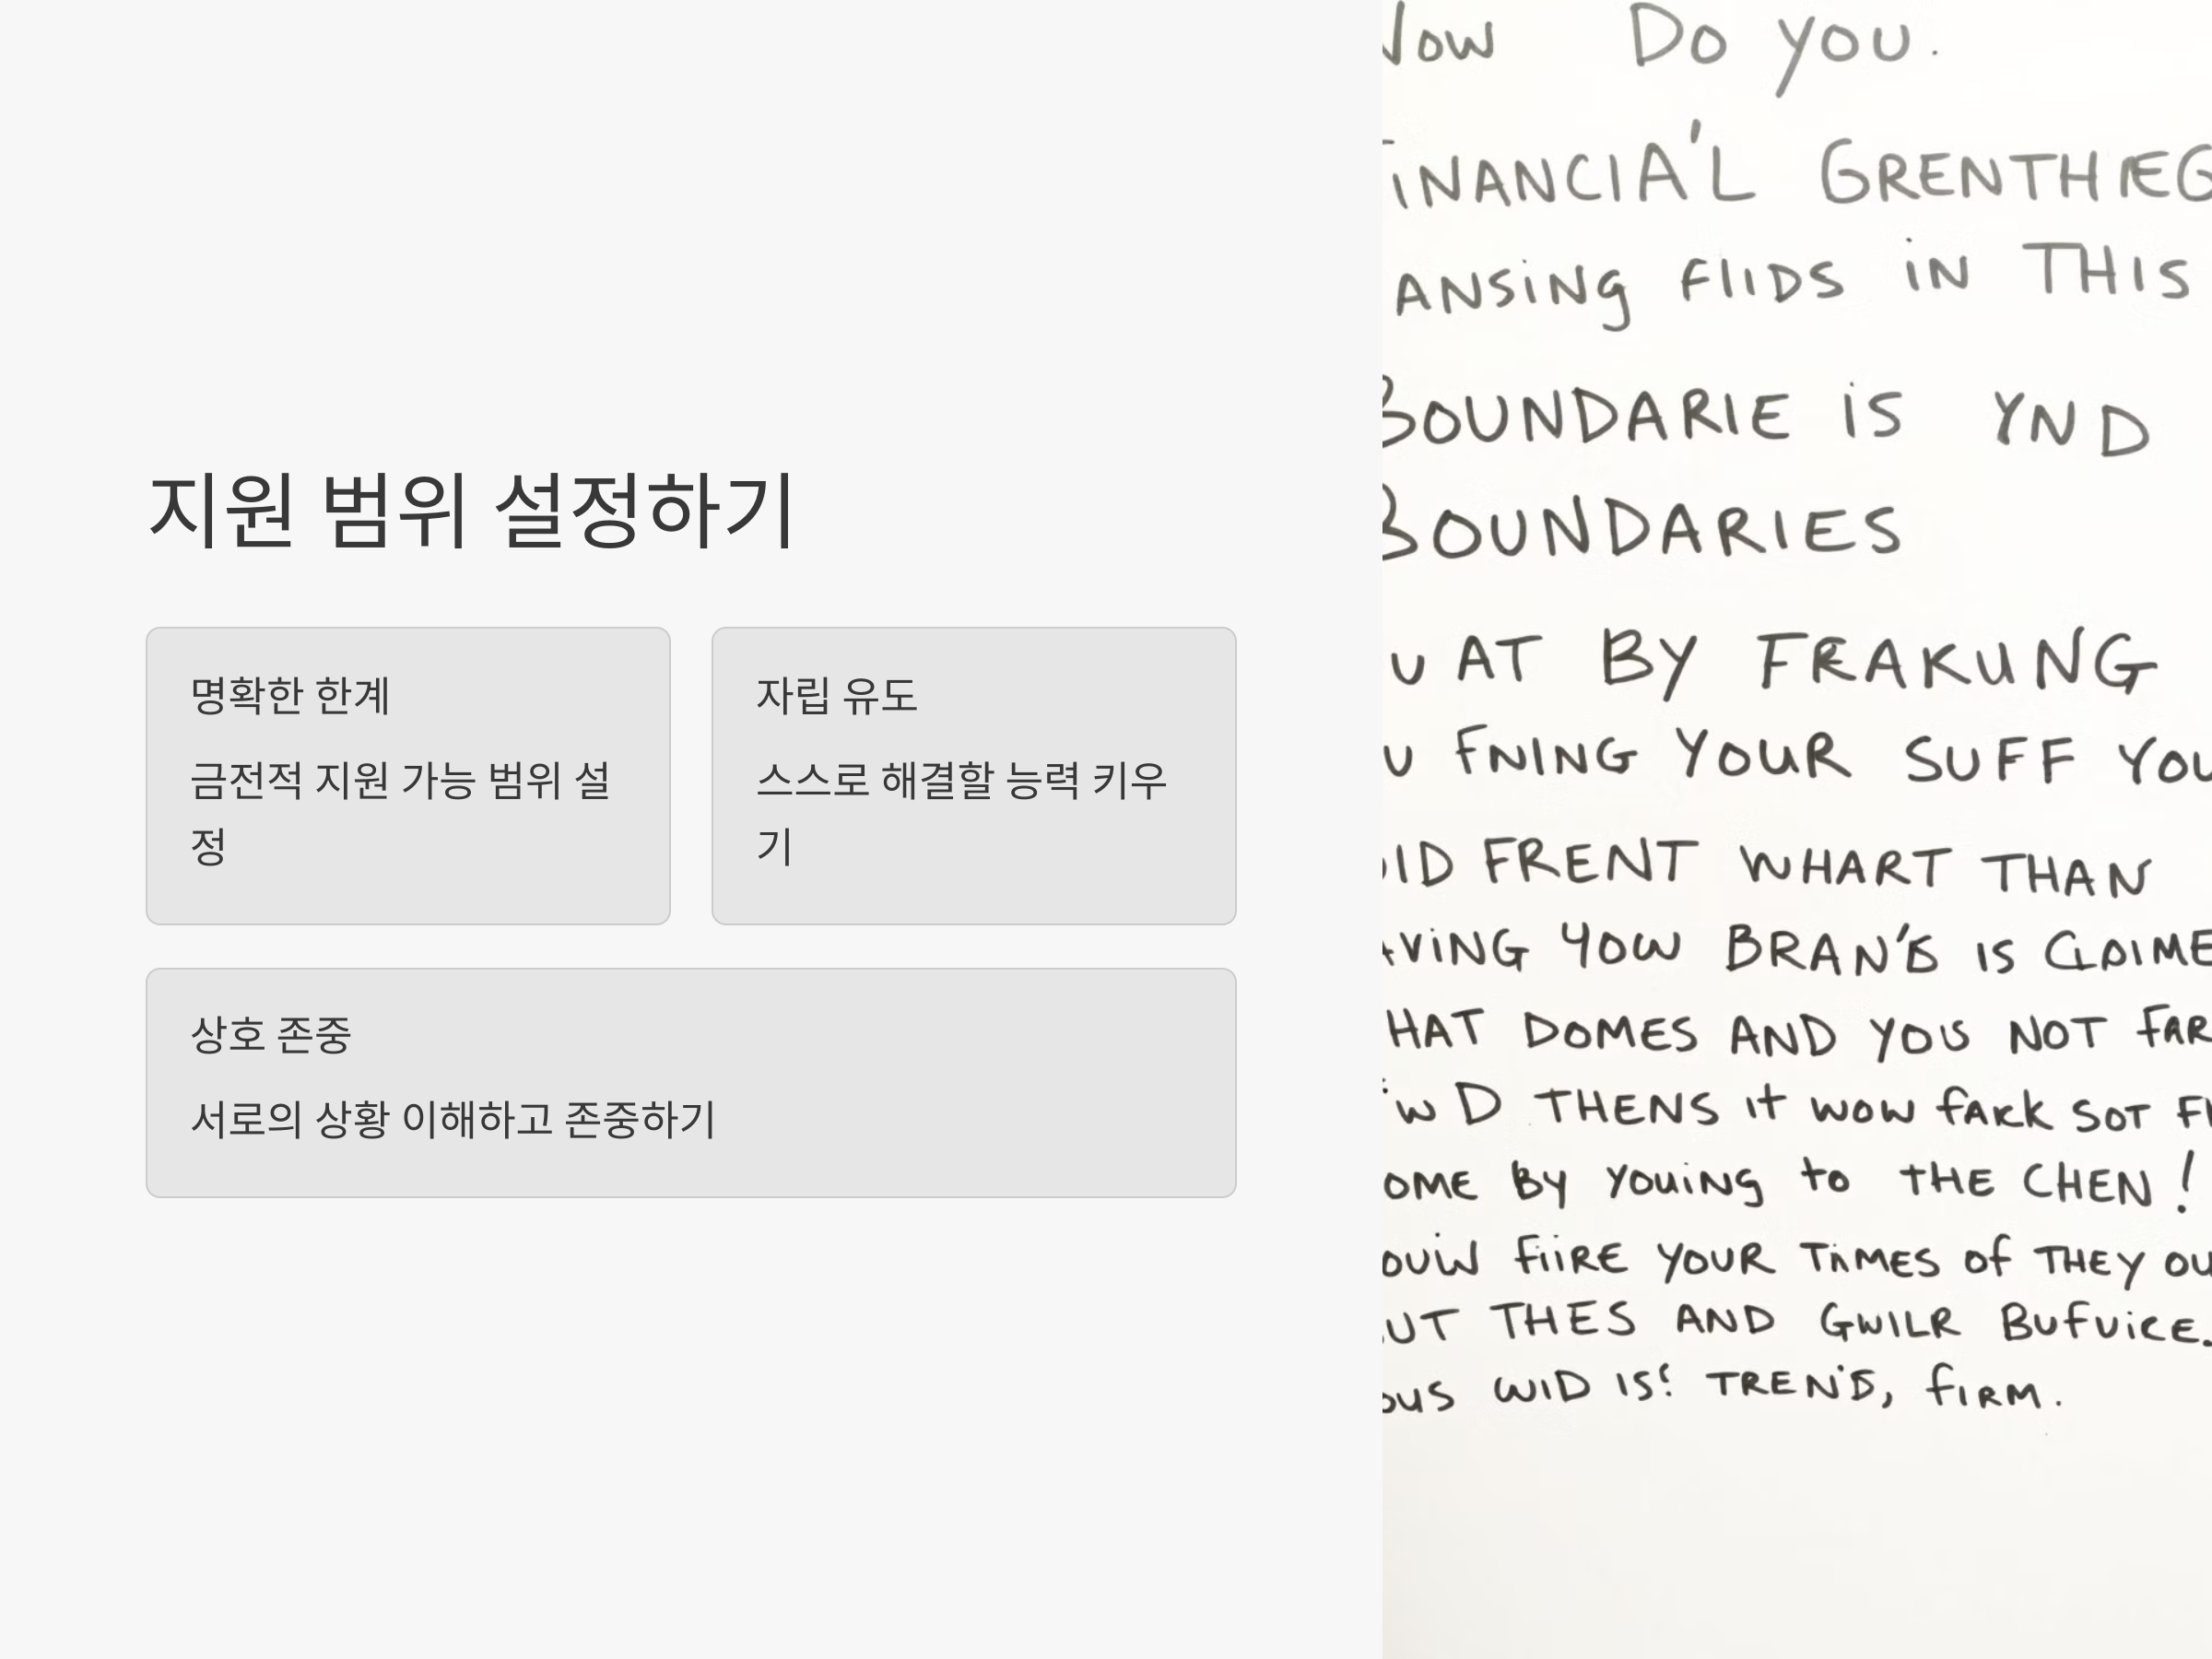 지원 범위 설정하기
명확한 한계
금전적 지원 가능 범위 설
정
자립 유도
스스로 해결할 능력 키우
기
상호 존중
서로의 상황 이해하고 존중하기
Do you.
ANSiNg FlIDS iN THIS
BOUNDARIE iS YND
BOUNDARIES
AT BY FRAKUNG
FNING YOUR SUFF
FRENT WHART THAN
YOW IS
DOMES AND YOUS NOT
D THENS it wow SOT
BY YOUiNg to THE CHEN!
FiiRE YOUR TiMES of THEY
THES AND GWILR BUFViCE.
WID IS: TREN'S, fiRM.